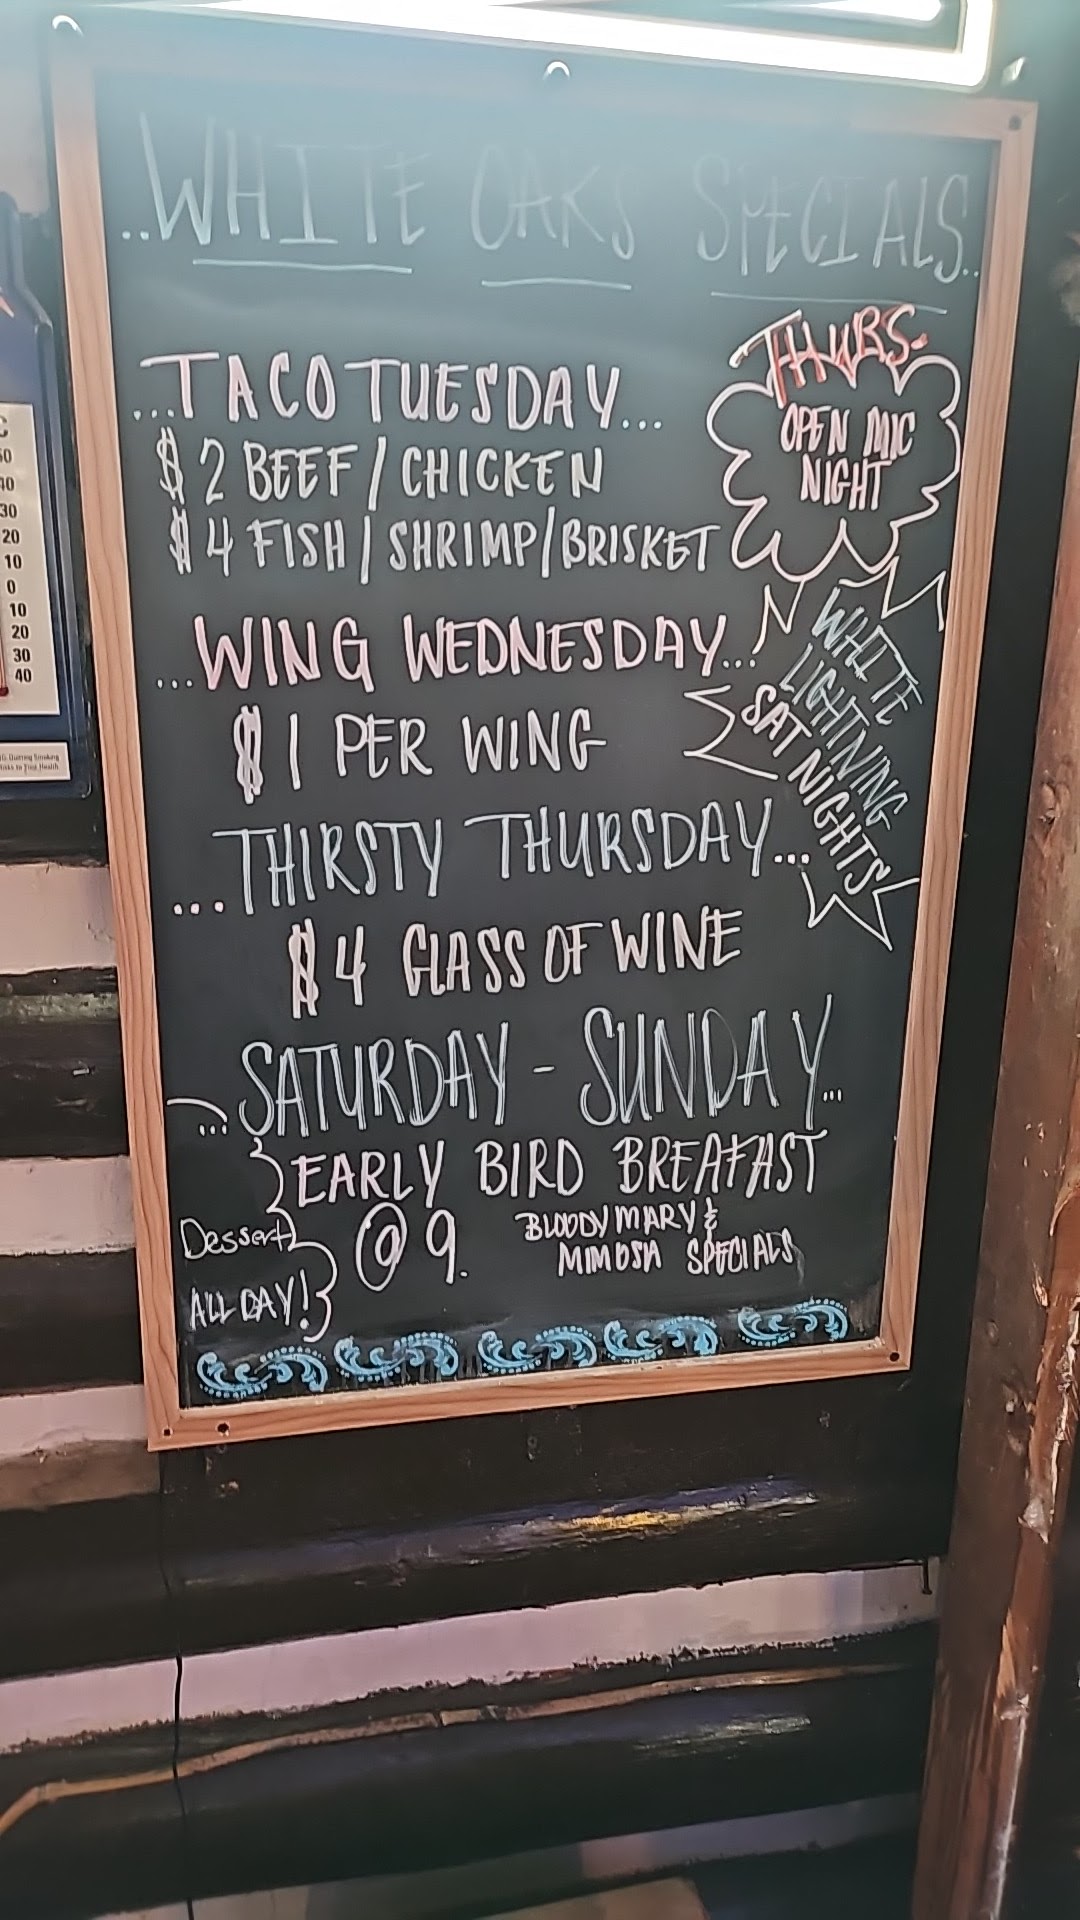 ..WHITE OAKS SPECIALS..
THURS.
OPEN MIC
NIGHT
...TACO TUESDAY...
$2 BEEF/CHICKEN
$4 FISH/SHRIMP/BRISKET
WHITE
LIGHTNING
SAT NIGHTS
...WING WEDNESDAY...
$1 PER WING
...THIRSTY THURSDAY...
$4 GLASS OF WINE
...SATURDAY - SUNDAY...
EARLY BIRD BREAFAST
@ 9.
BLOODY MARY &
MIMOSA SPECIALS
Dessert
ALL DAY!
C
50
40
30
20
10
0
10
20
30
40